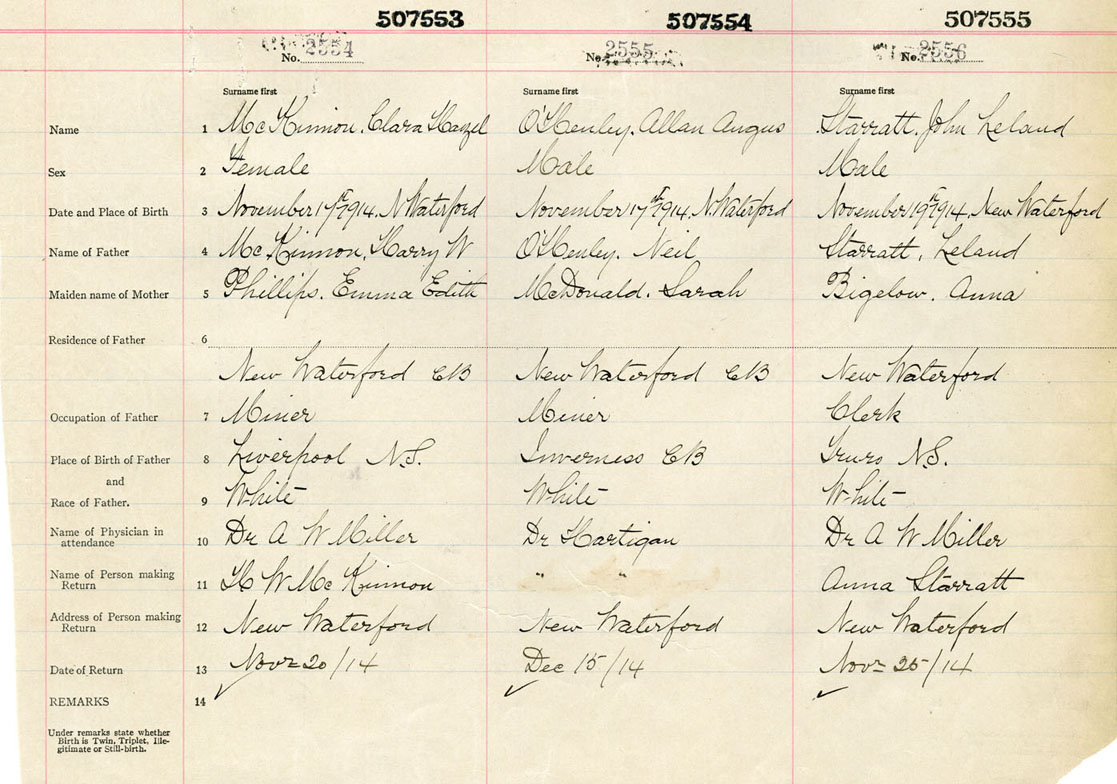 507553 507554 507555
No. 2554 No. 2555 No. 2556
Surname first Surname first Surname first
Name 1 McKinnon. Clara Hazel O'Henley. Allan Angus Starratt. John Leland
Sex 2 Female Male Male
Date and Place of Birth 3 November 17th 1914. N Waterford November 17th 1914. N. Waterford November 19th 1914. New Waterford
Name of Father 4 McKinnon, Harry W O'Henley. Neil Starratt, Leland
Maiden name of Mother 5 Phillips. Emma Edith McDonald. Sarah Bigelow. Anna
Residence of Father 6
New Waterford CB New Waterford CB New Waterford
Occupation of Father 7 Miner Miner Clerk
Place of Birth of Father 8 Liverpool N.S. Inverness CB Truro N.S.
and
Race of Father. 9 White White White
Name of Physician in
attendance 10 Dr A W Miller Dr Hartigan Dr A W Miller
Name of Person making
Return 11 H W McKinnon " " Anna Starratt
Address of Person making
Return 12 New Waterford New Waterford New Waterford
Date of Return 13 Novr 20/14 Dec 15/14 Novr 25/14
REMARKS 14
Under remarks state whether
Birth is Twin, Triplet, Ille-
gitimate or Still-birth.